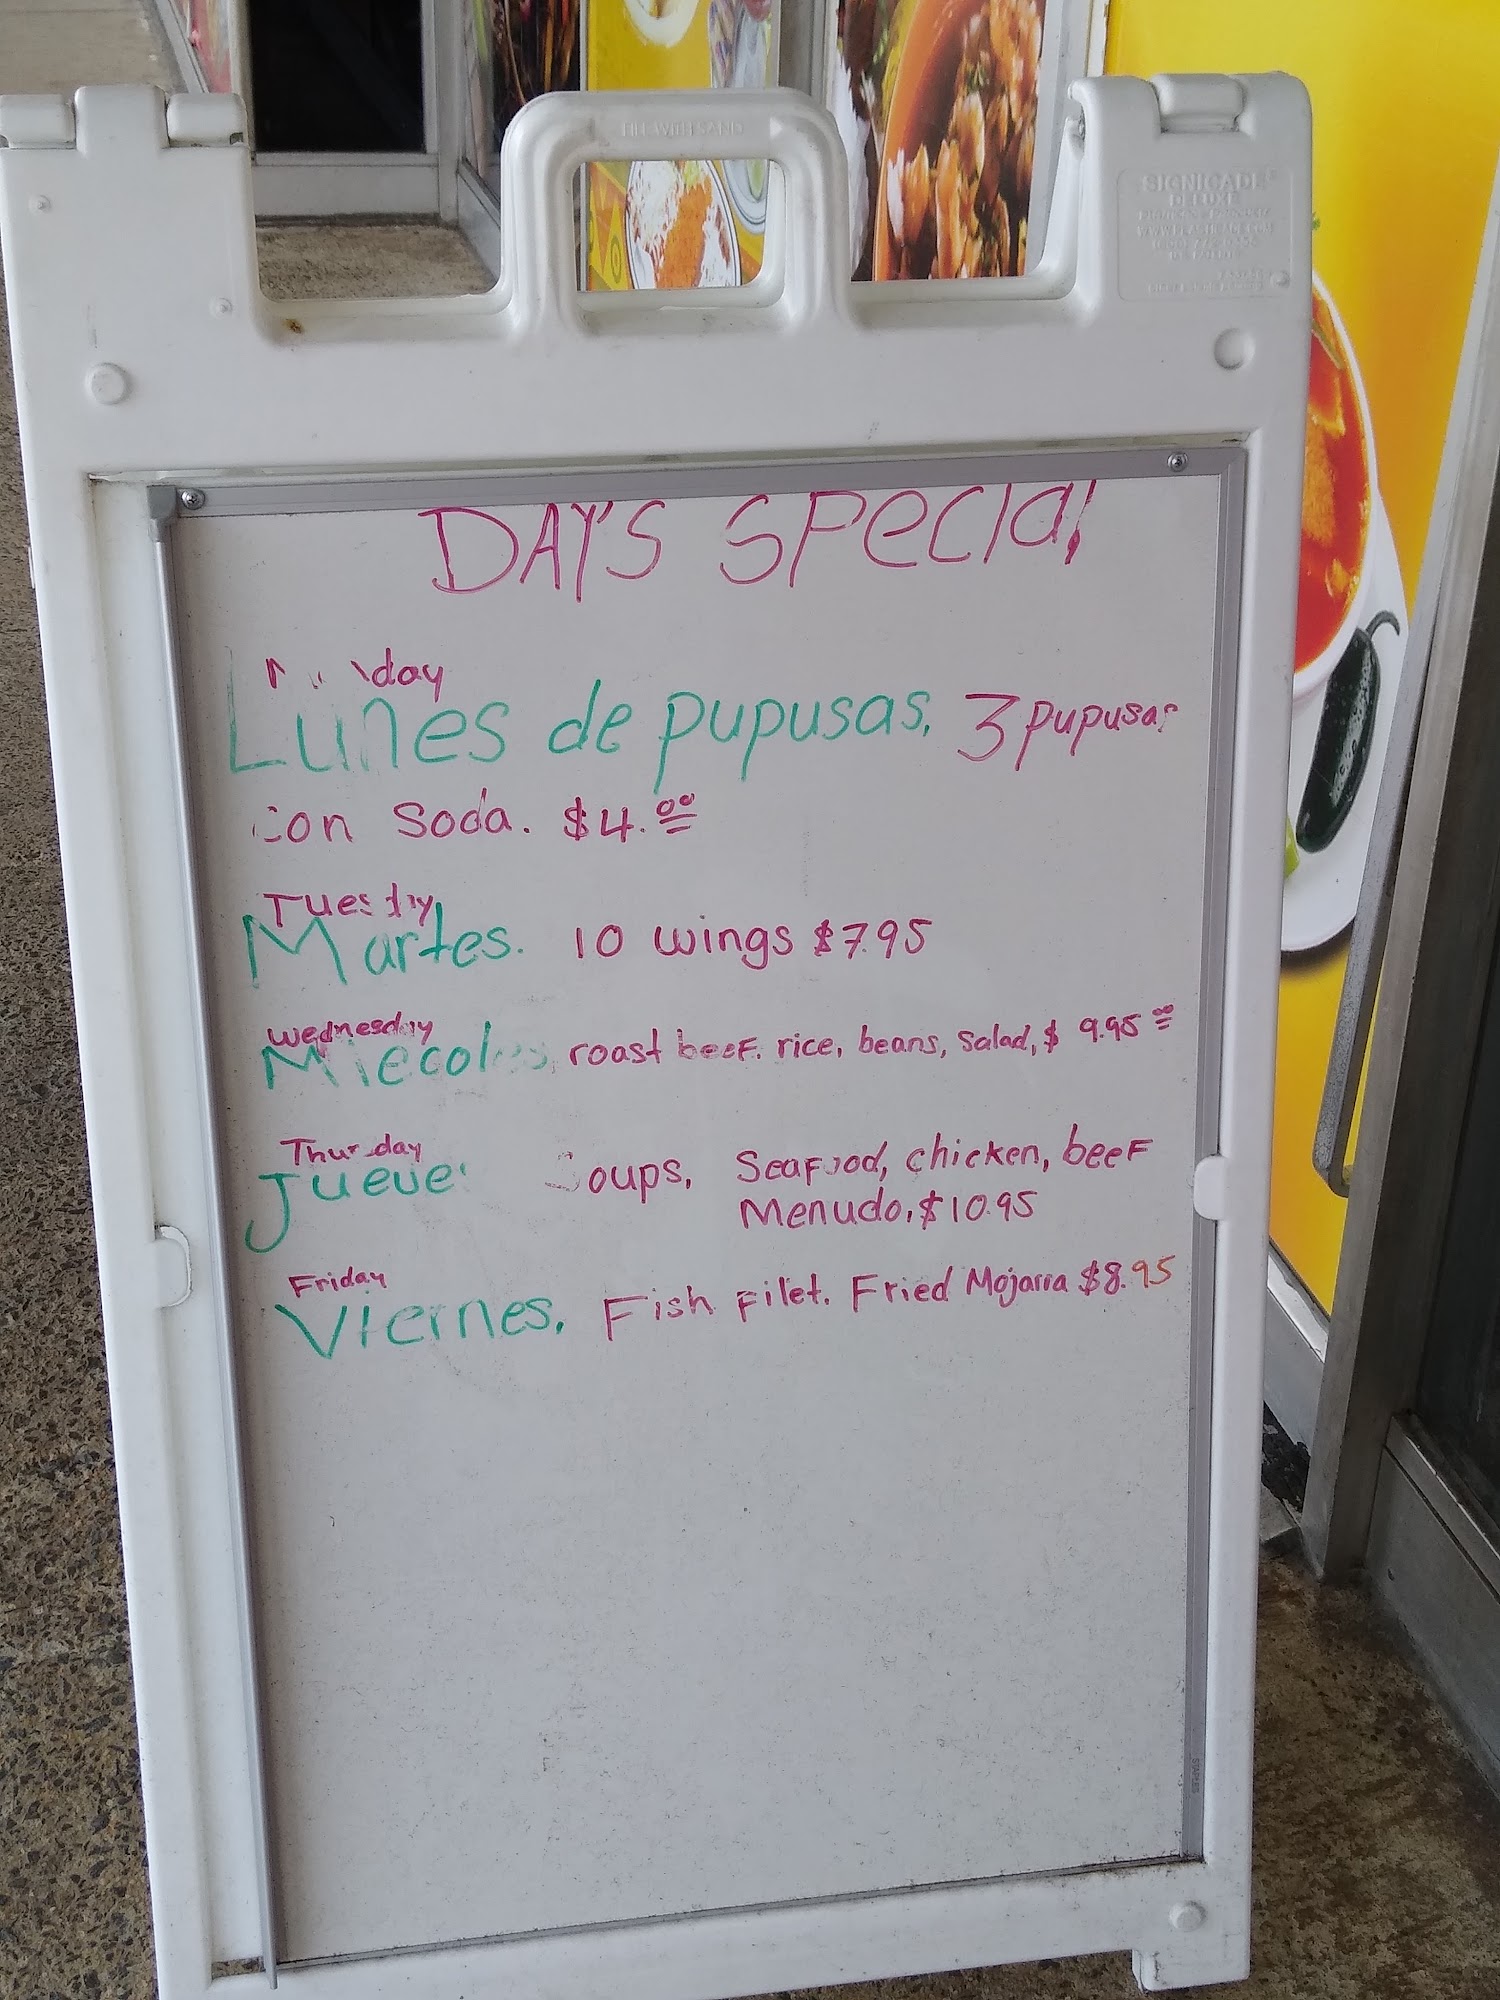 FILL WITH SAND
SIGNICADE
DELUXE
DAY'S SPecial
Lunes de pupusas. 3 pupusas
con Soda. $4.00
Tuesday
Martes. 10 wings $7.95
Wednesday
Miecoles roast beeF. rice, beans, Salad, $ 9.95 00
Thursday
Jueve Soups, SeaFood, chicken, beeF
Menudo, $10.95
Friday
Viernes. Fish Filet. Fried Mojarra $8.95
STAPLES